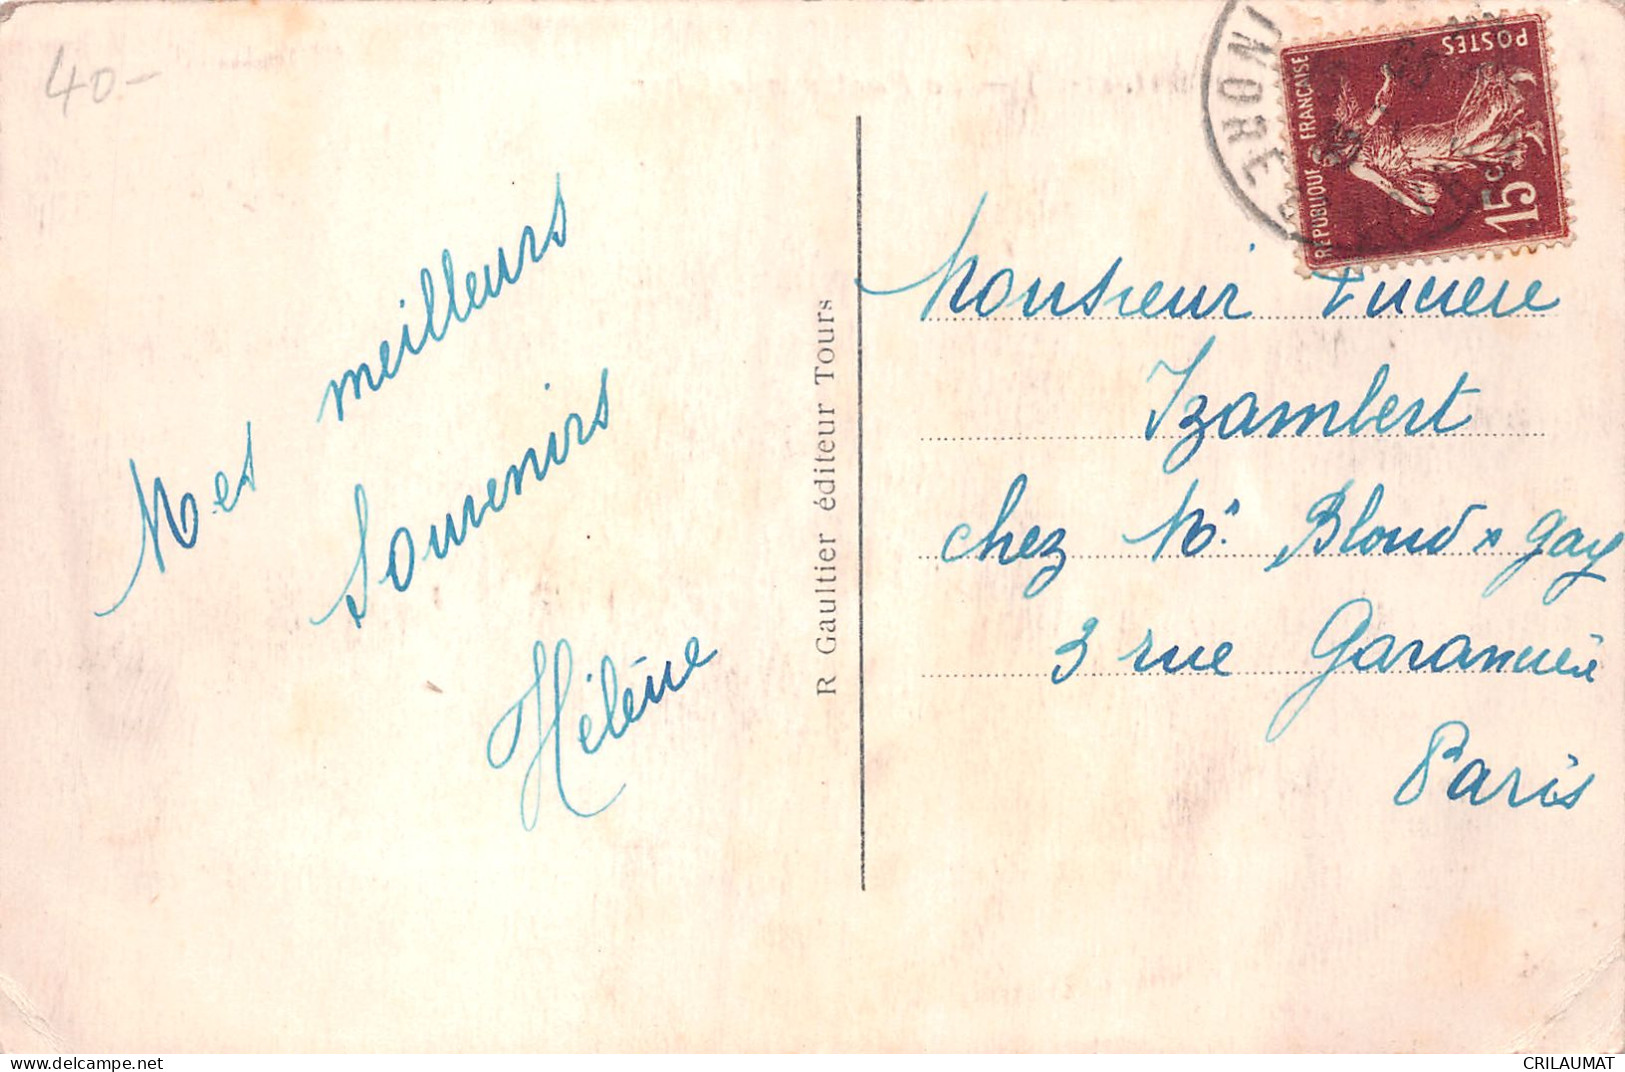 40-
Mes meilleurs
Souvenirs
Hélène
R Gaultier éditeur Tours
POSTES
REPUBLIQUE FRANCAISE
15c
INDRE
Monsieur
Izambert
chez Mrs Bloud x gay
3 rue Garancière
Paris
CRILAUMAT